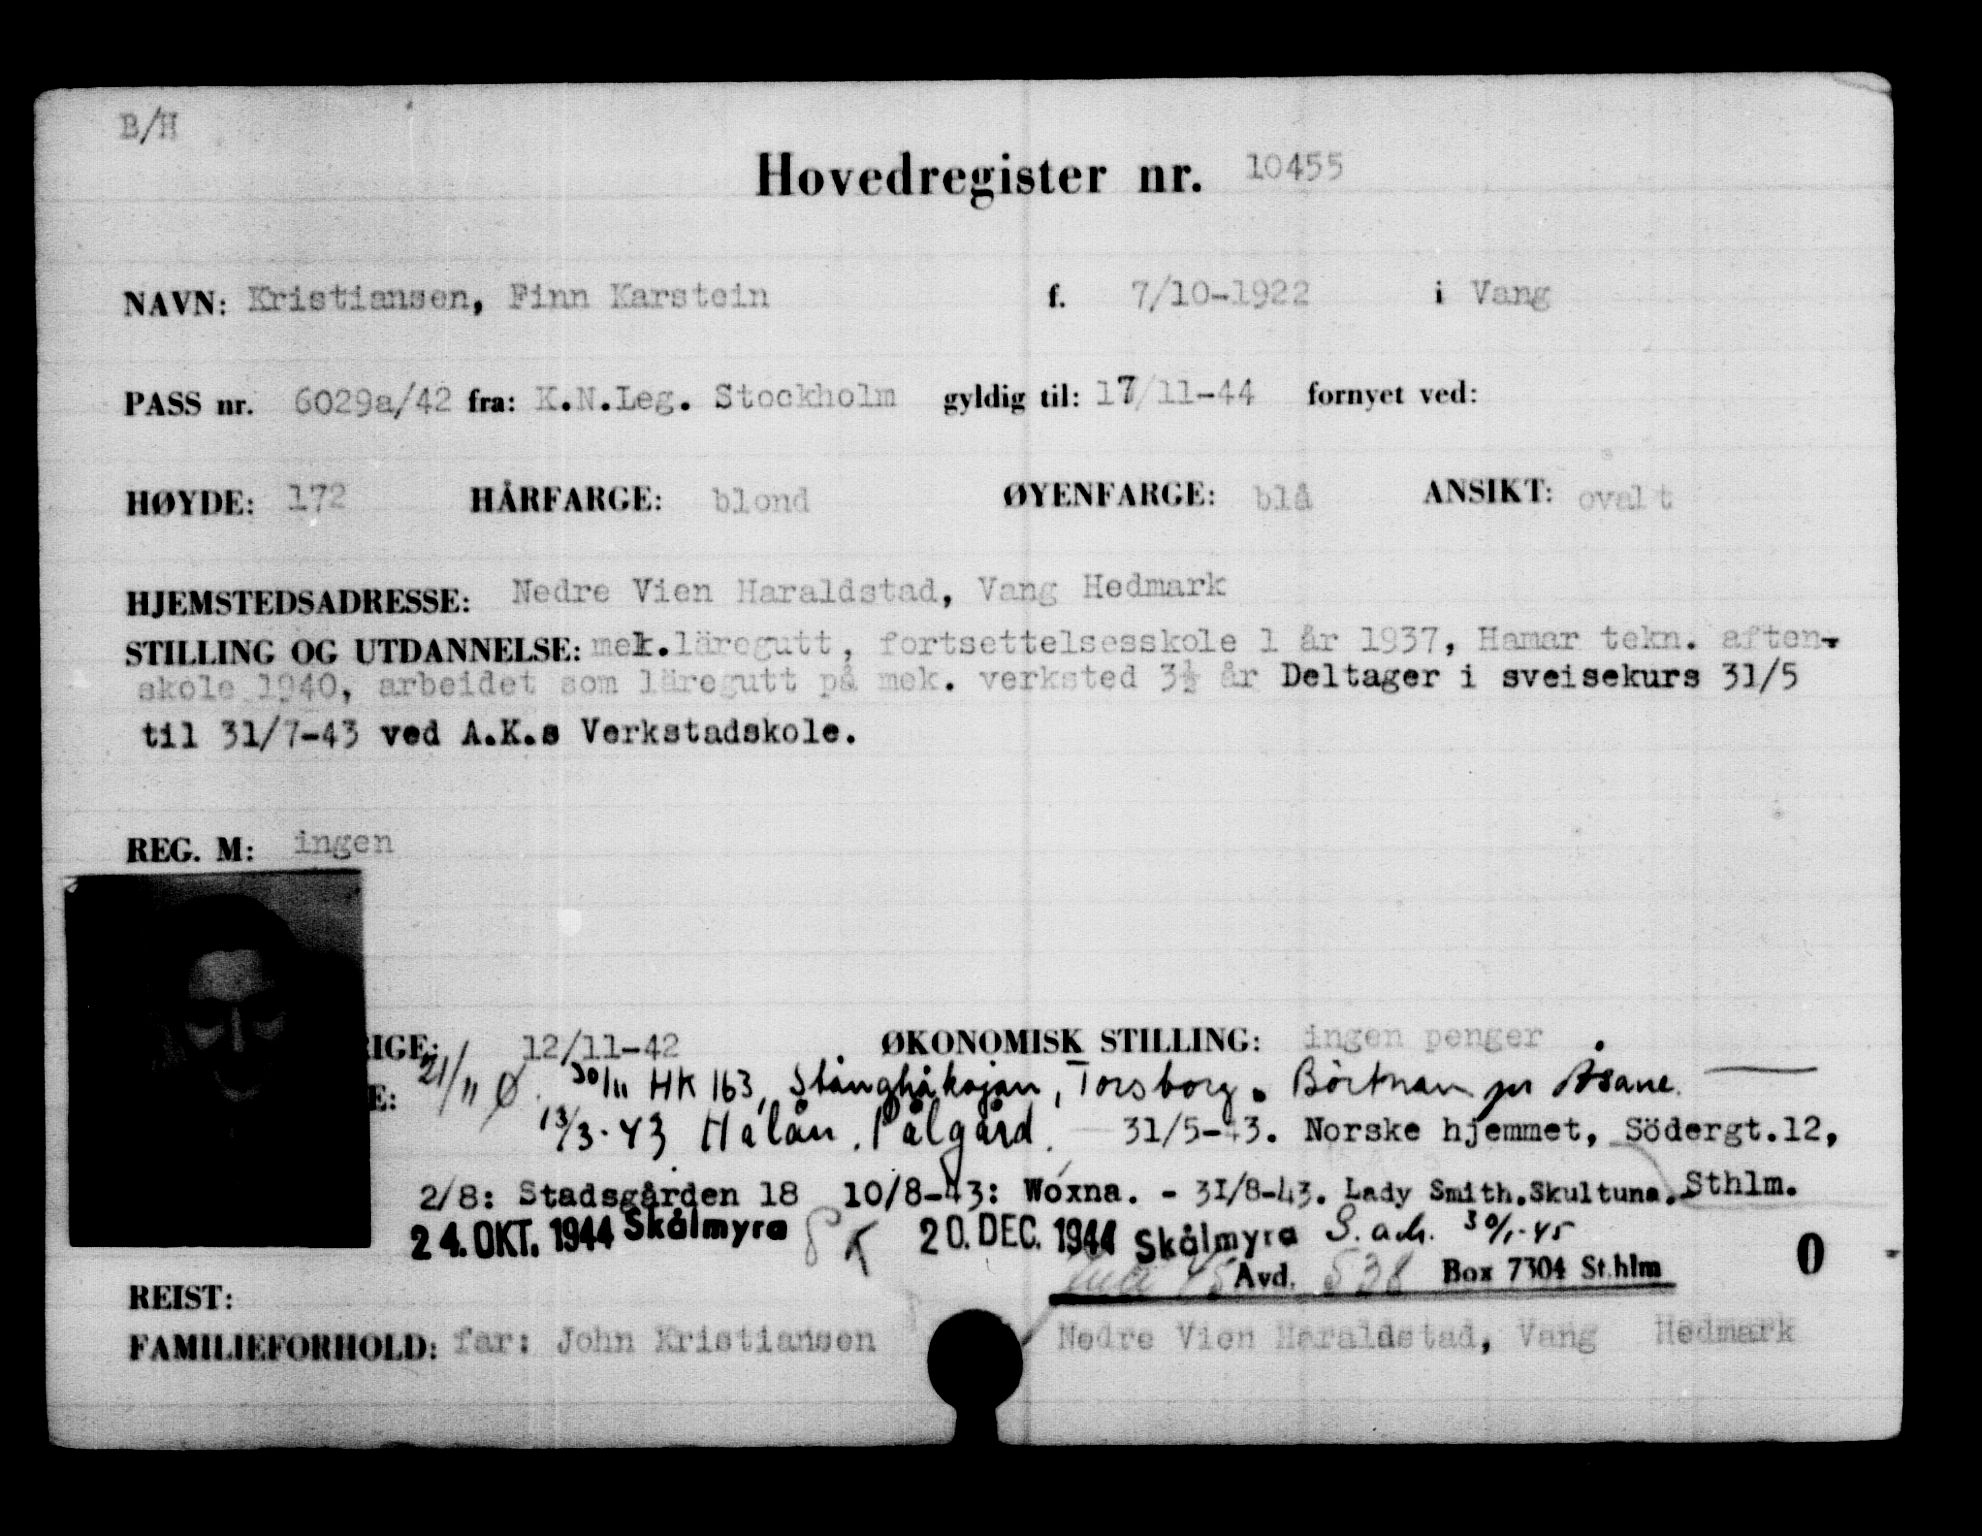 B/H
Hovedregister nr. 10455
NAVN: Kristiansen, Finn Karstein f. 7/10-1922 i Vang
PASS nr. 6029a/42 fra: K.N.Leg. Stockholm gyldig til: 17/11-44 fornyet ved:
HØYDE: 172 HÅRFARGE: blond ØYENFARGE: blå ANSIKT: ovalt
HJEMSTEDSADRESSE: Nedre Vien Haraldstad, Vang Hedmark
STILLING OG UTDANNELSE: mek.läregutt, fortsettelsesskole 1 år 1937, Hamar tekn. aften-
skole 1940, arbeidet som läregutt på mek. verksted 3½ år Deltager i sveisekurs 31/5
til 31/7-43 ved A.K.s Verkstadskole.
REG. M: ingen
RIGE: 12/11-42 ØKONOMISK STILLING: ingen penger
E: 21/11 Ø. 30/11 HK 163, Stånghåkojan, Torsborg. Börtnan pr Åsarne.
13/3-43 Halån, Pålgård. 31/5-43. Norske hjemmet, Södergt.12,
2/8: Stadsgården 18 10/8-43: Woxna. - 31/8-43. Lady Smith.Skultuna. Sthlm.
24. OKT. 1944 Skålmyra 20. DEC. 1944 Skålmyra S. adr. 30/1-45
45 Avd. 538 Box 7304 Sthlm 0
REIST:
FAMILIEFORHOLD: far: John Kristiansen Nedre Vien Haraldstad, Vang Hedmark